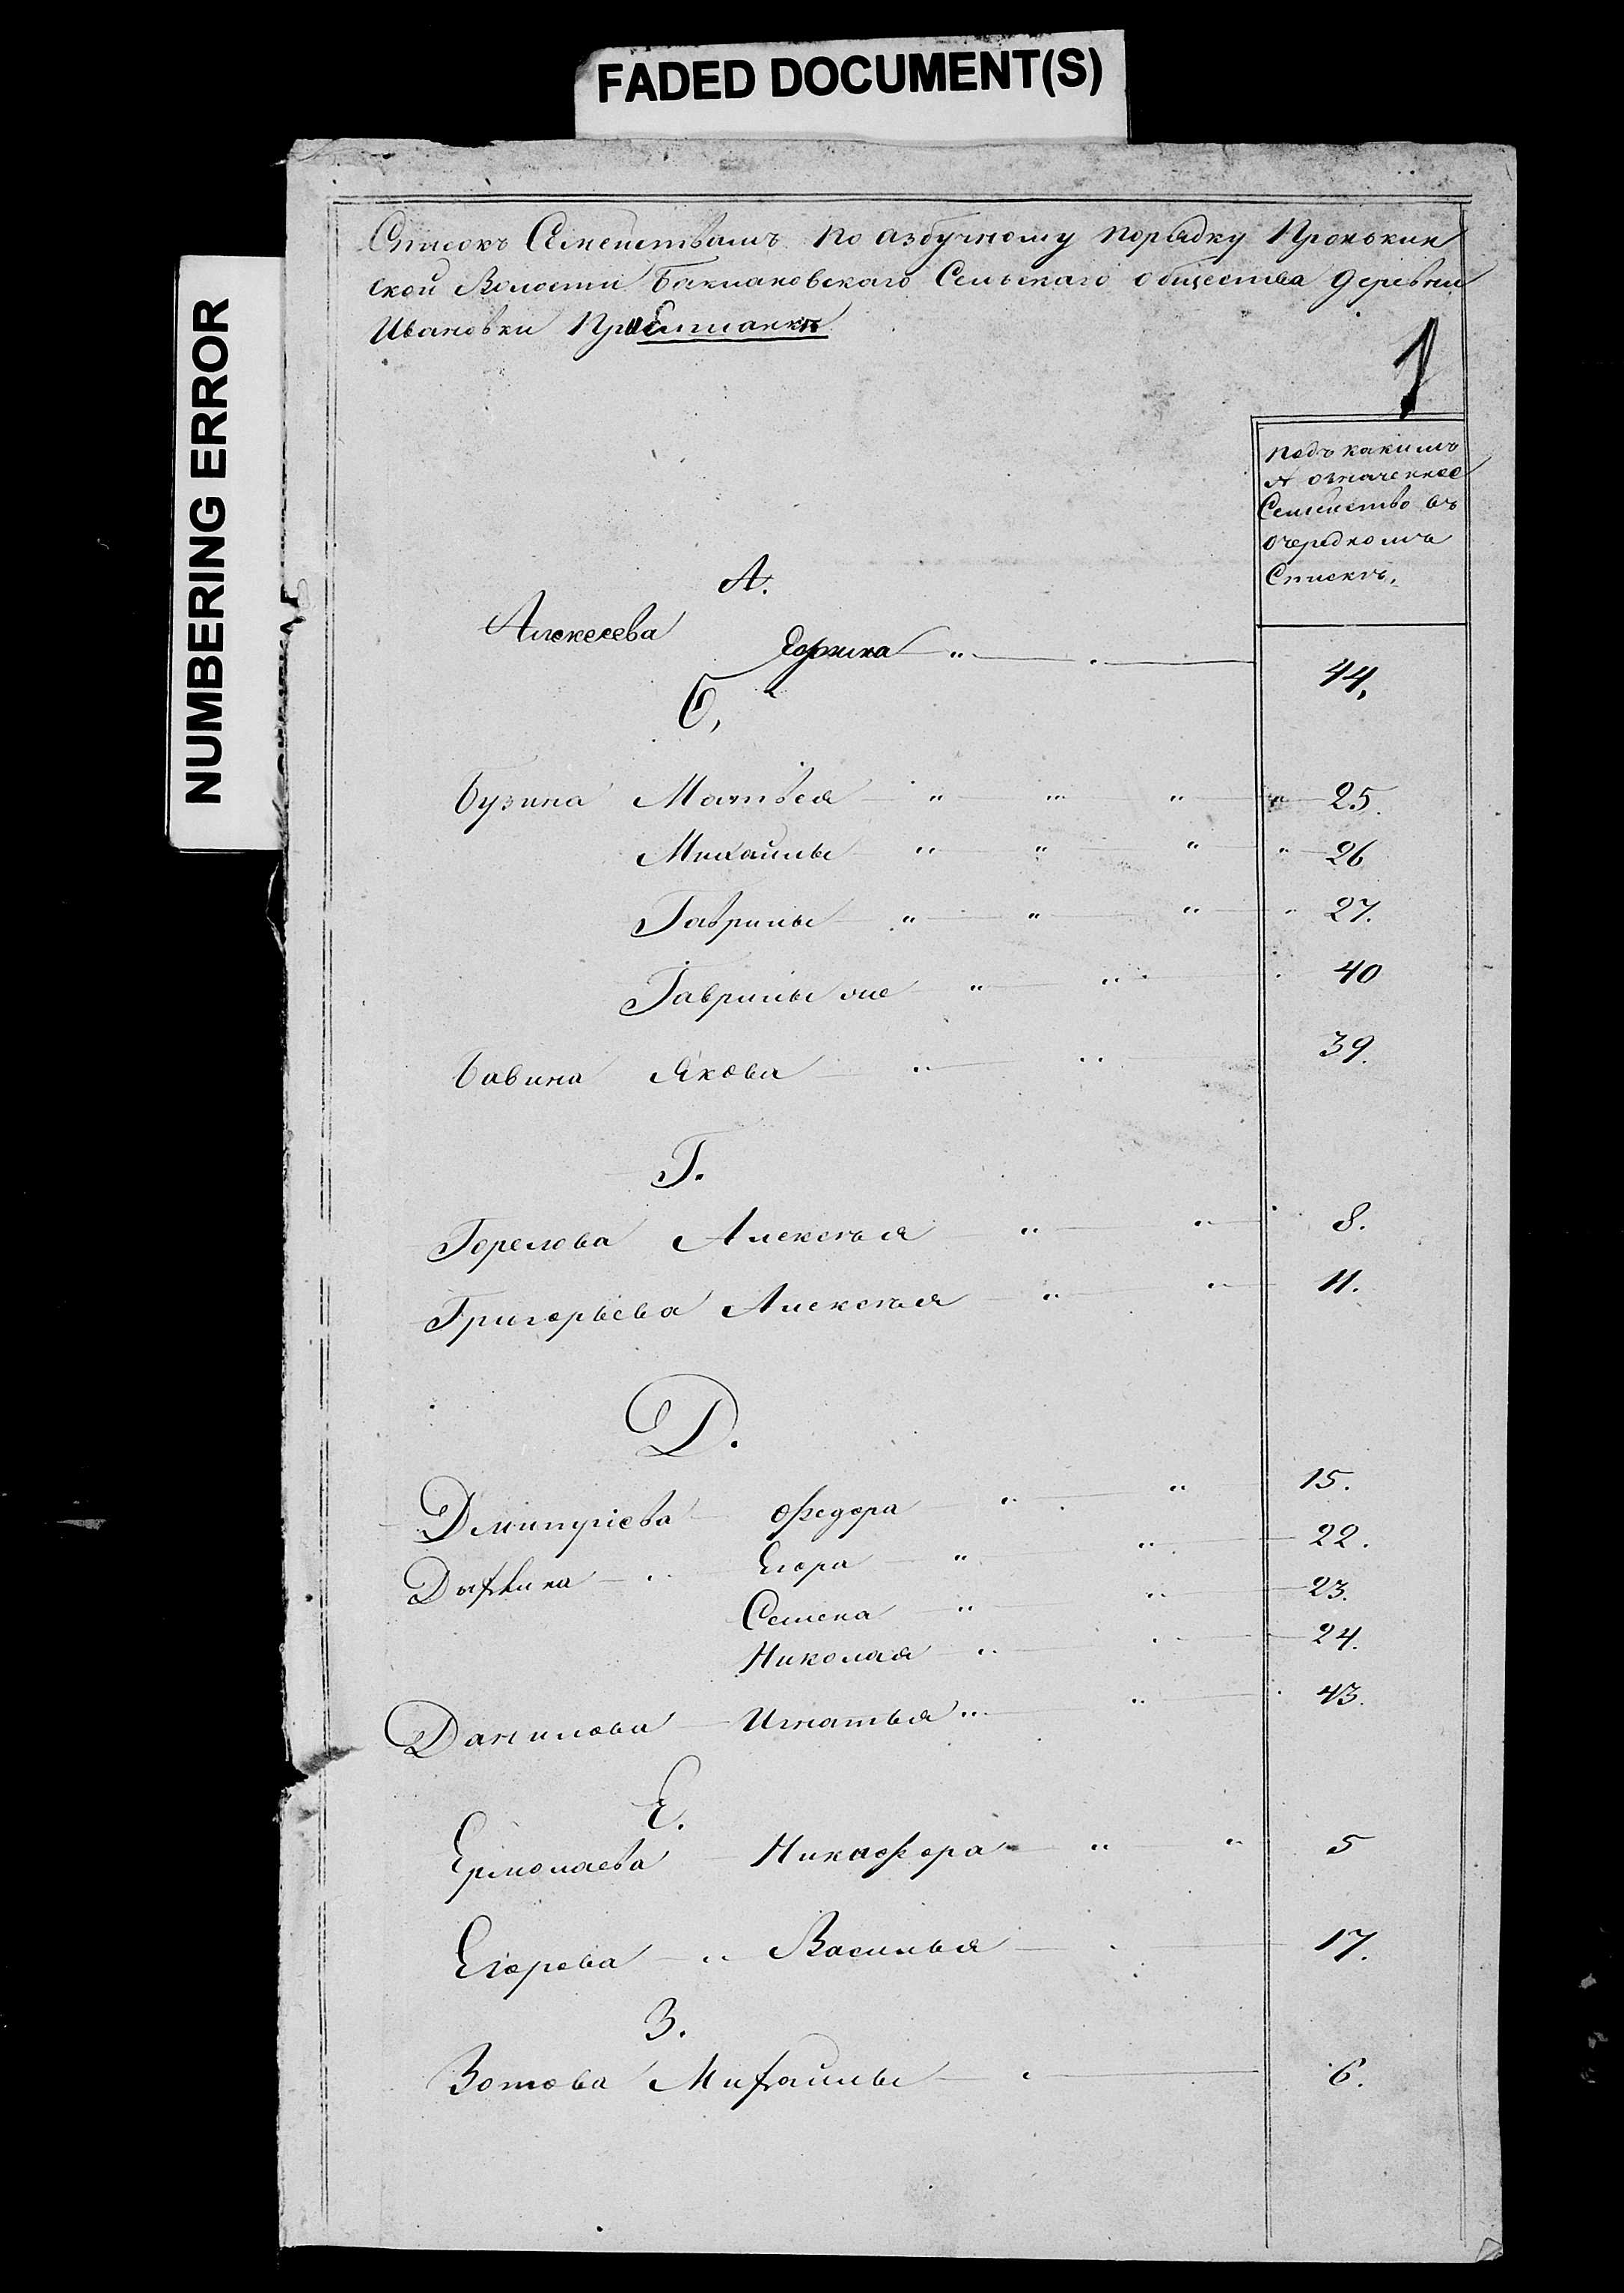 FADED DOCUMENT(S)
NUMBERING ERROR
Списокъ Семействамъ по азбучному порядку Пронькин
ской Волости Баклановского Сельскаго общества деревни
Ивановки
1
подъ какимъ
№ означенное
Семейство въ
очередномъ
Спискѣ.
А.
Алексеева 44,
Б,
Бузина Матвея " " " " 25.
Михайлы " " " " 26
Гаврилы " " " " 27.
Гаврилы же " " 40
Бавина Якова " " 39.
Г.
Горелова Алексѣя " " 8.
Григорьева Алексѣя " " 11.
Д.
Дмитріева Федора " " 15.
Егора " " 22.
Семена " " 23.
Николая " " 24.
Данилова Игнатья " " 43.
Е.
Ермолаева Никифора " " 5
Егорова " Василья 17.
З.
Зотова Михайлы " 6.